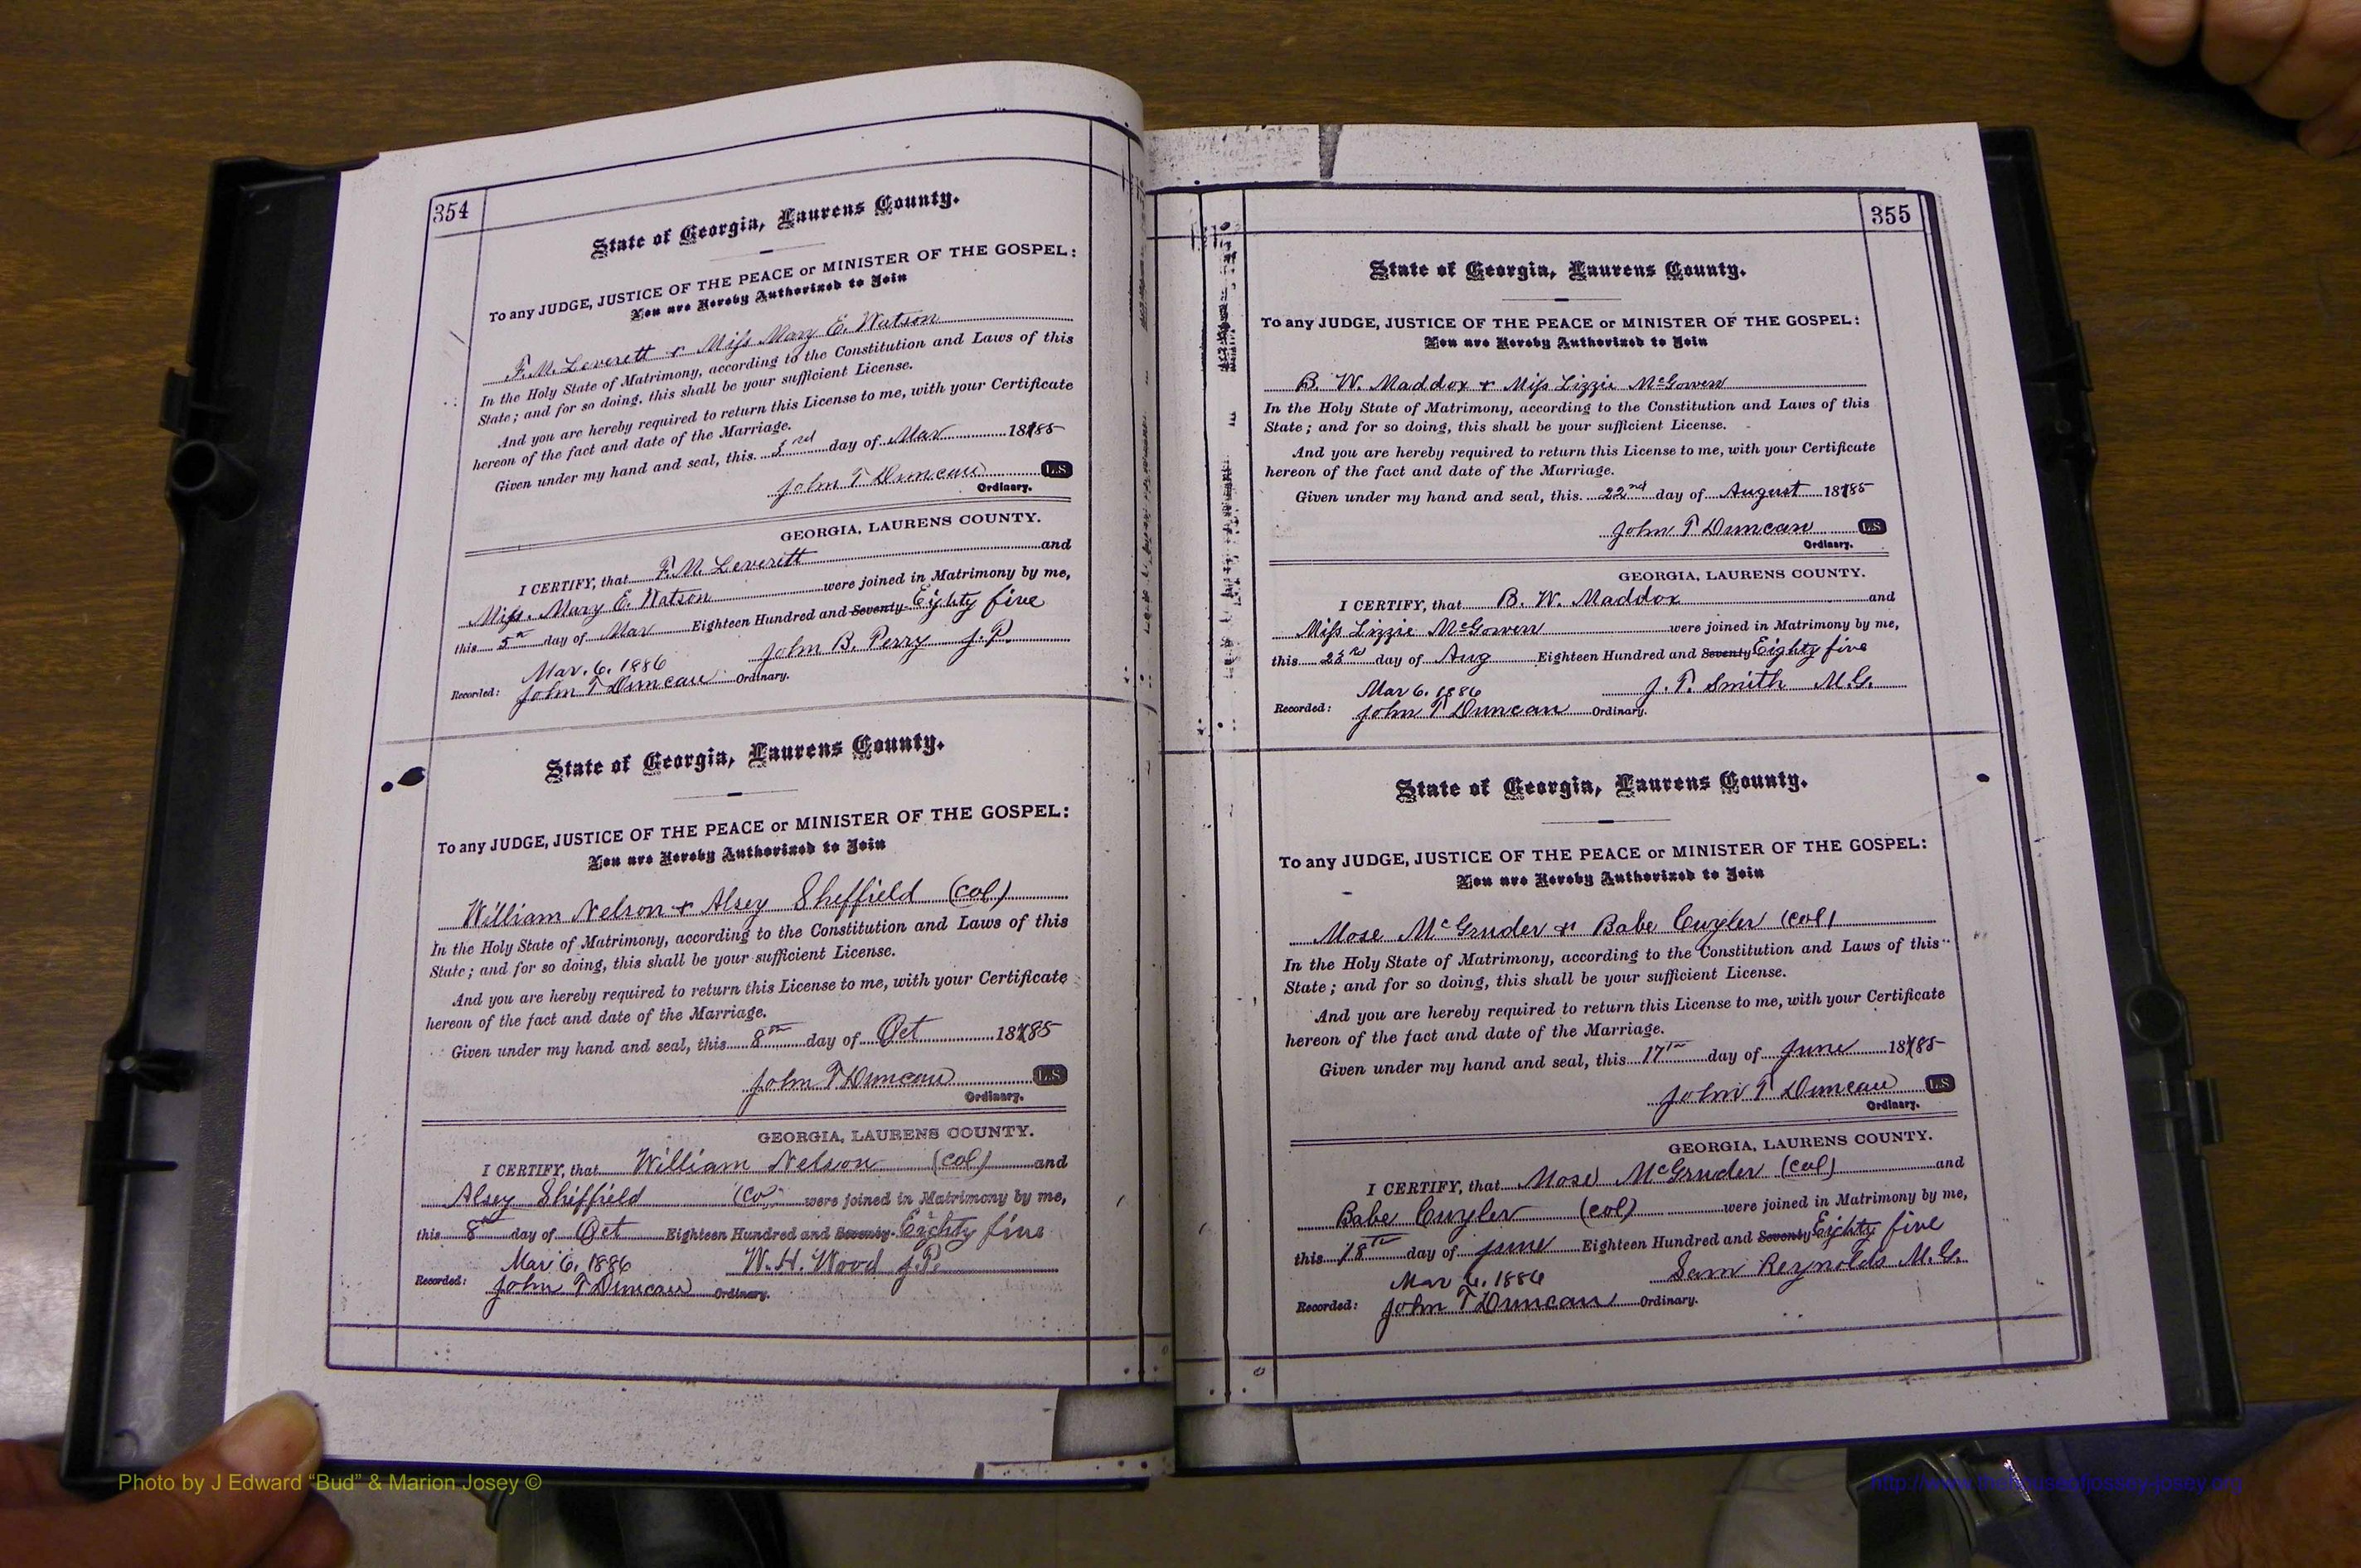 354
State of Georgia, Laurens County.
To any JUDGE, JUSTICE OF THE PEACE or MINISTER OF THE GOSPEL:
You are Hereby Authorized to Join
F. M. Leverett & Miss Mary E. Watson
In the Holy State of Matrimony, according to the Constitution and Laws of this
State; and for so doing, this shall be your sufficient License.
And you are hereby required to return this License to me, with your Certificate
hereon of the fact and date of the Marriage.
Given under my hand and seal, this day of Mar 18785
John T Duncan L.S
Ordinary.
GEORGIA, LAURENS COUNTY.
I CERTIFY, that F. M. Leverett and
Miss. Mary E. Watson were joined in Matrimony by me,
this 5th day of Mar Eighteen Hundred and Seventy Eighty five
John B. Perry J.P.
Mar. 6. 1886
Recorded: John T Duncan Ordinary.
State of Georgia, Laurens County.
To any JUDGE, JUSTICE OF THE PEACE or MINISTER OF THE GOSPEL:
You are Hereby Authorized to Join
William Nelson & Alsey Sheffield (col)
In the Holy State of Matrimony, according to the Constitution and Laws of this
State; and for so doing, this shall be your sufficient License.
And you are hereby required to return this License to me, with your Certificate
hereon of the fact and date of the Marriage.
Given under my hand and seal, this 8th day of Oct 18785
John T Duncan L.S
Ordinary.
GEORGIA, LAURENS COUNTY.
I CERTIFY, that William Nelson (col) and
Alsey Sheffield (co were joined in Matrimony by me,
this 8th day of Oct Eighteen Hundred and Seventy Eighty five
Mar 6, 1886 W. H. Wood J.P.
Recorded: John T Duncan Ordinary.
355
State of Georgia, Laurens County.
To any JUDGE, JUSTICE OF THE PEACE or MINISTER OF THE GOSPEL:
You are Hereby Authorized to Join
B. W. Maddox & Miss Lizzie McGowen
In the Holy State of Matrimony, according to the Constitution and Laws of this
State; and for so doing, this shall be your sufficient License.
And you are hereby required to return this License to me, with your Certificate
hereon of the fact and date of the Marriage.
Given under my hand and seal, this 22nd day of August 18785
John T Duncan L.S
Ordinary.
GEORGIA, LAURENS COUNTY.
I CERTIFY, that B. W. Maddox and
Miss Lizzie McGowen were joined in Matrimony by me,
this 23rd day of Aug Eighteen Hundred and Seventy Eighty five
Mar 6. 1886 J. T. Smith M.G.
Recorded: John T Duncan Ordinary.
State of Georgia, Laurens County.
To any JUDGE, JUSTICE OF THE PEACE or MINISTER OF THE GOSPEL:
You are Hereby Authorized to Join
Mose McGruder & Babe Cuyler (col)
In the Holy State of Matrimony, according to the Constitution and Laws of this
State; and for so doing, this shall be your sufficient License.
And you are hereby required to return this License to me, with your Certificate
hereon of the fact and date of the Marriage.
Given under my hand and seal, this 17th day of June 18785
John T Duncan L.S
Ordinary.
GEORGIA, LAURENS COUNTY.
I CERTIFY, that Mose McGruder (col) and
Babe Cuyler (col) were joined in Matrimony by me,
this 18th day of June Eighteen Hundred and Seventy Eighty five
Mar 6. 1886 Sam Reynolds M.G.
Recorded: John T Duncan Ordinary.
Photo by J Edward “Bud” & Marion Josey ©